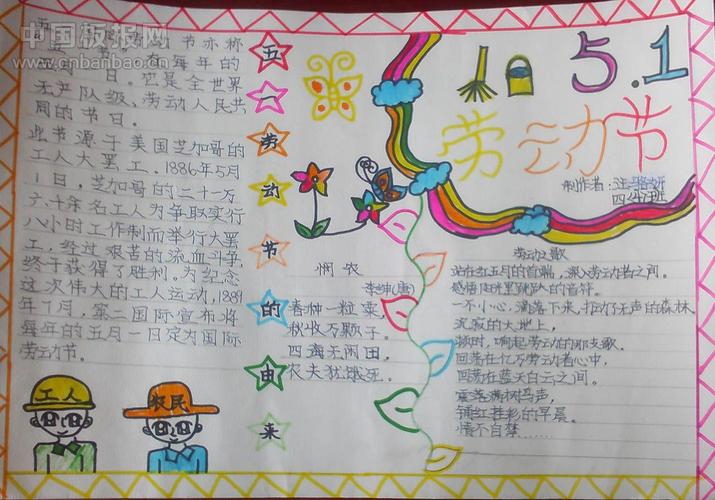 中国板报网
www.cnbanbao.cn
节亦称
每年的
日。它是全世界
无产队级、劳动人民共
同的节日。
此节源于美国芝加哥的
工人大罢工。1886年5月
1日,芝加哥的二十一万
六千年名工人为争取实行
八小时工作制而举行大罢
工,经过艰苦的流血斗争,
终于获得了胜利。为纪念
这次伟大的工人运动,1889
年7月,第二国际宣布将
每年的五月一日定为国际
劳动节。
工人
农民
五一劳动节的由来
悯农
李绅(唐)
春种一粒粟
秋收万颗子。
四海无闲田,
农夫犹饿死。
5.1
劳动节
制作者:汪
四(4)班
劳动之歌
站在红五月的首端,深入劳动者之间。
感悟阳光里跳跃的音符。
一不小心,滴落下来,拍打无声的森林
沉寂的大地上,
顿时,响起劳动的那支歌。
回荡在亿万劳动者心中,
回荡在蓝天白云之间。
震落满树鸟声,
铺红挂彩的早晨。
情不自禁……